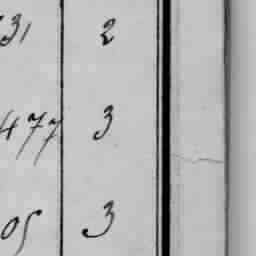 31 2
477 3
05 3